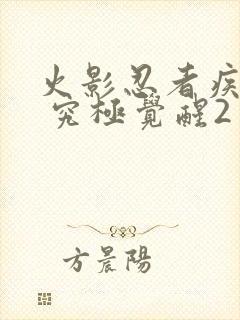 火影忍者疾
究極覺醒2
方晨陽